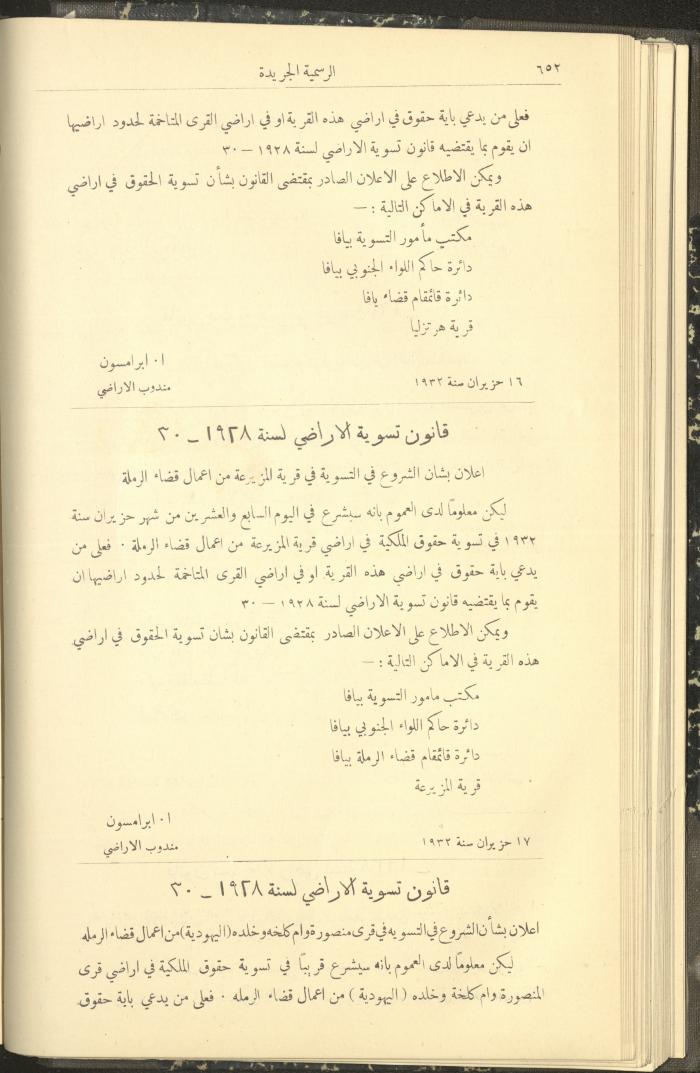 ٦٥٢
الرسمية الجريدة
فعلى من يدعي باية حقوق في اراضي هذه القرية او في اراضي القرى المتاخمة لحدود اراضيها
ان يقوم بما يقتضيه قانون تسوية الاراضي لسنة ١٩٢٨ — ٣٠
ويمكن الاطلاع على الاعلان الصادر بمقتضى القانون بشأن تسوية الحقوق في اراضي
هذه القرية في الاماكن التالية : —
مكتب مأمور التسوية بيافا
دائرة حاكم اللواء الجنوبي بيافا
دائرة قائمقام قضاء يافا
قرية هرتزليا
ا٠ ابرامسون
١٦ حزيران سنة ١٩٣٢
مندوب الاراضي
قانون تسوية الاراضي لسنة ١٩٢٨ ـ ٣٠
اعلان بشان الشروع في التسوية في قرية المزيرعة من اعمال قضاء الرملة
ليكن معلومًا لدى العموم بانه سيشرع في اليوم السابع والعشرين من شهر حزيران سنة
١٩٣٢ في تسوية حقوق الملكية في اراضي قرية المزيرعة من اعمال قضاء الرملة ٠ فعلى من
يدعي باية حقوق في اراضي هذه القرية او في اراضي القرى المتاخمة لحدود اراضيها ان
يقوم بما يقتضيه قانون تسوية الاراضي لسنة ١٩٢٨ — ٣٠
ويمكن الاطلاع على الاعلان الصادر بمقتضى القانون بشان تسوية الحقوق في اراضي
هذه القرية في الاماكن التالية : —
مكتب مامور التسوية بيافا
دائرة حاكم اللواء الجنوبي بيافا
دائرة قائمقام قضاء الرملة بيافا
قرية المزيرعة
ا٠ ابرامسون
١٧ حزيران سنة ١٩٣٢
مندوب الاراضي
قانون تسوية الاراضي لسنة ١٩٢٨ ـ ٣٠
اعلان بشأن الشروع في التسويه في قرى منصورة وام كلخه وخلده (اليهودية) من اعمال قضاء الرمله
ليكن معلومًا لدى العموم بانه سيشرع قريبًا في تسوية حقوق الملكية في اراضي قرى
المنصورة وام كلخة وخلده ( اليهودية ) من اعمال قضاء الرمله ٠ فعلى من يدعي باية حقوق